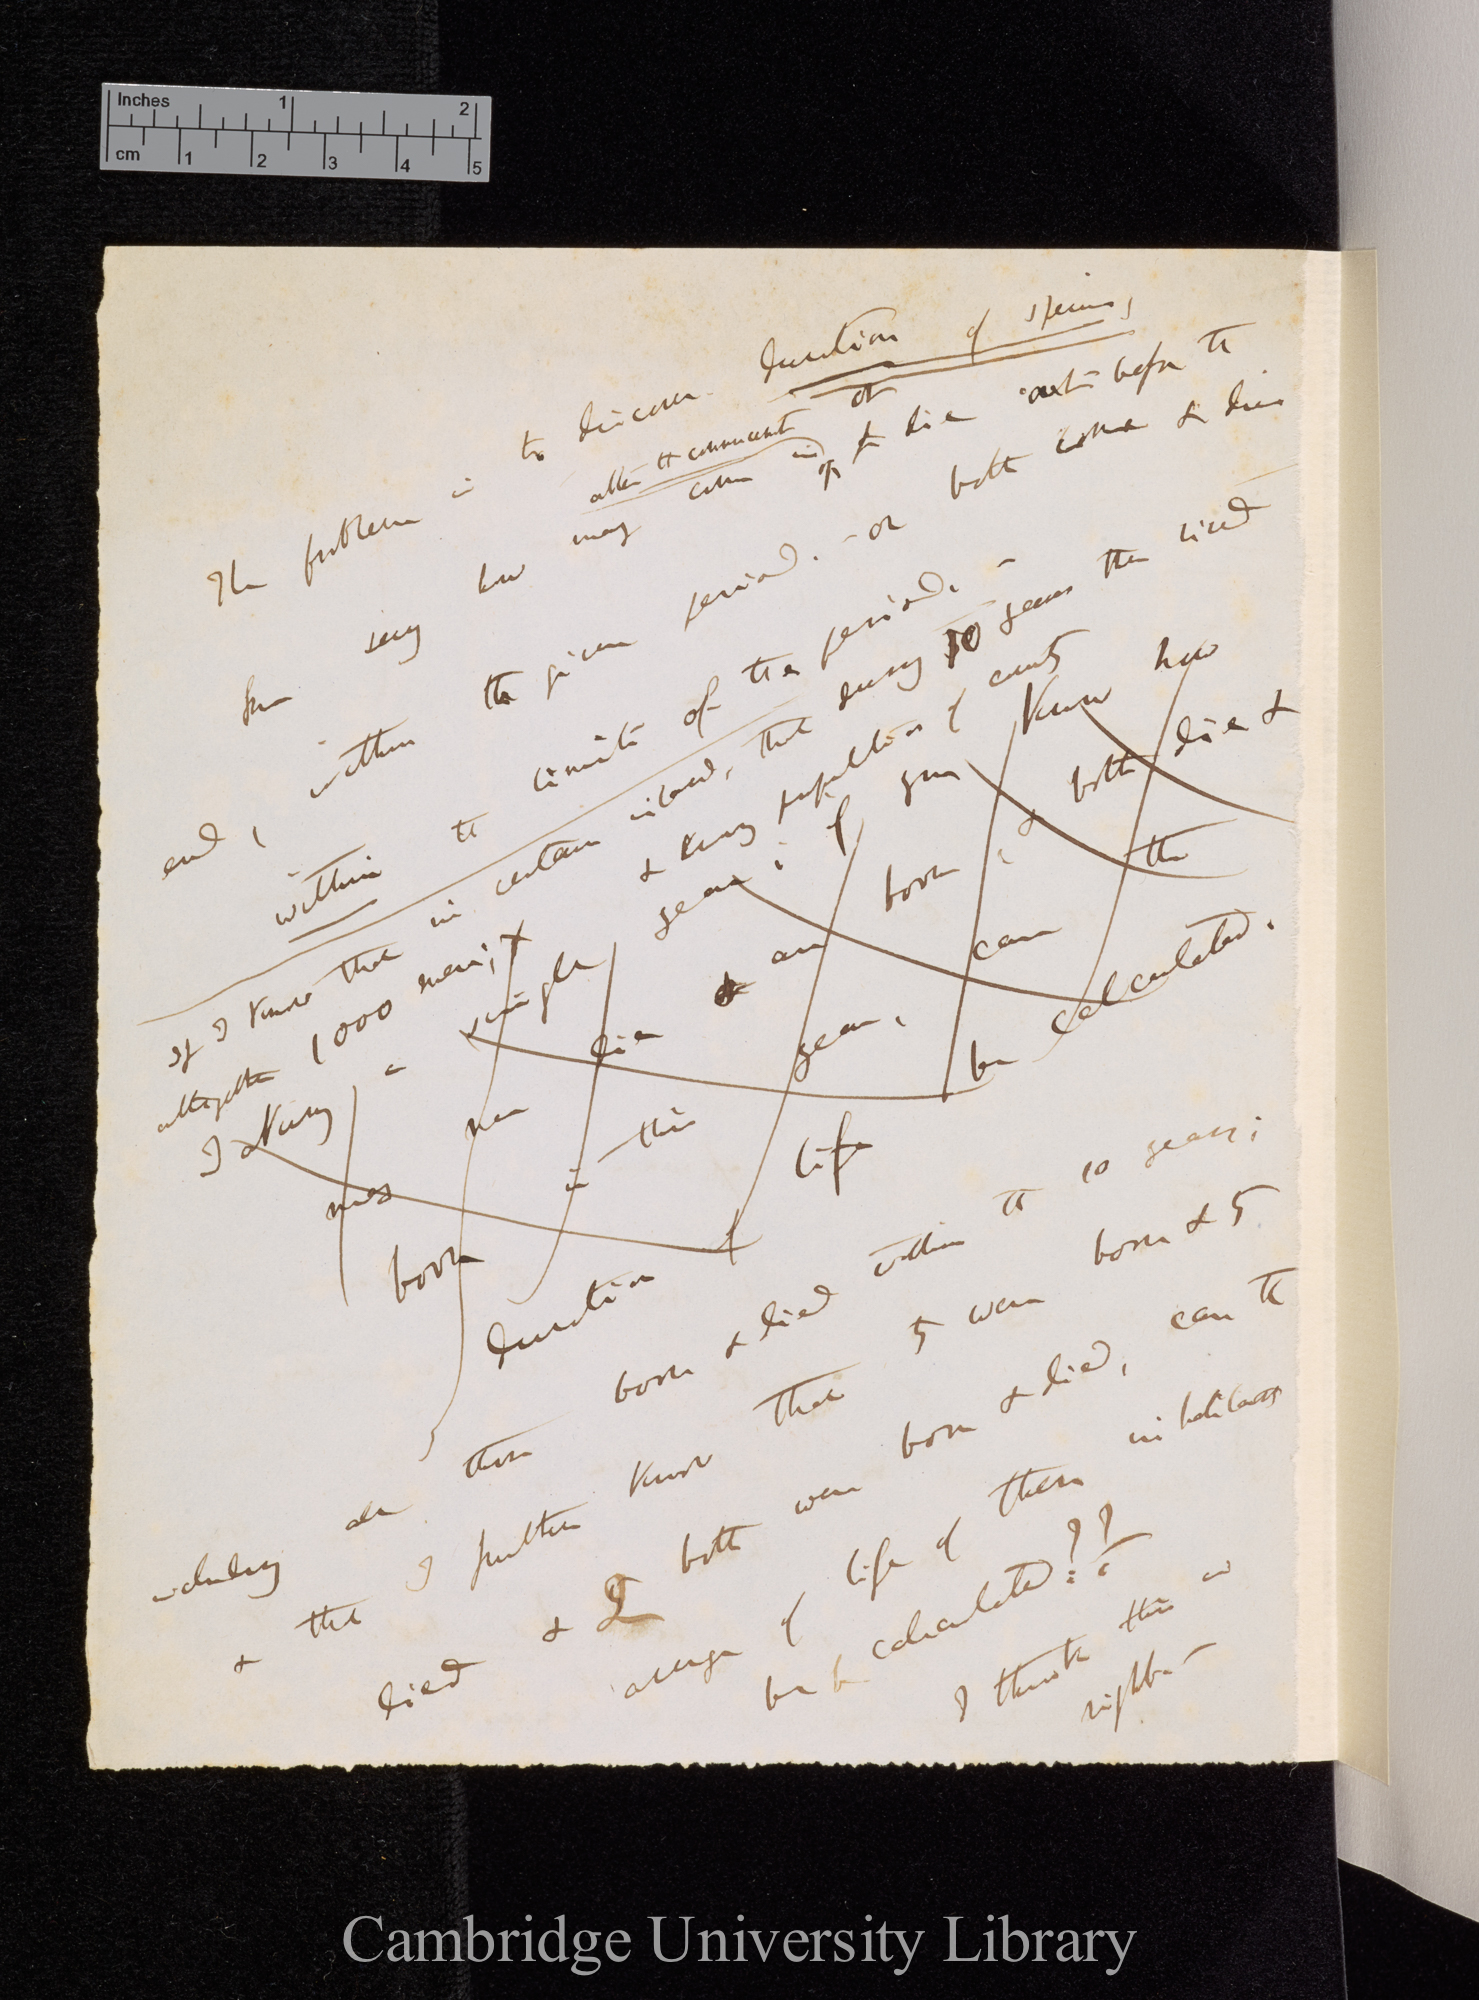 Inches 1 2
cm 1 2 3 4 5
The problem is to discover duration of species,
from seeing how many come in & die out before the
after the commencement or
end, within the given period. — or both come & dies
within the limits of the period. —
If I know that in certain island, that during 10 years there lived
altogether 1000 men; & know population of country
I during a single year; if you know how
men die & are born, & both die &
born in this year, can the
duration life be calculated.
including all those born & died within the 10 years;
& that I further know that 5 were born & 5
died & 2 both were born & died, can the
average of life of these inhabitants
be calculated??
I think this is
right
Cambridge University Library